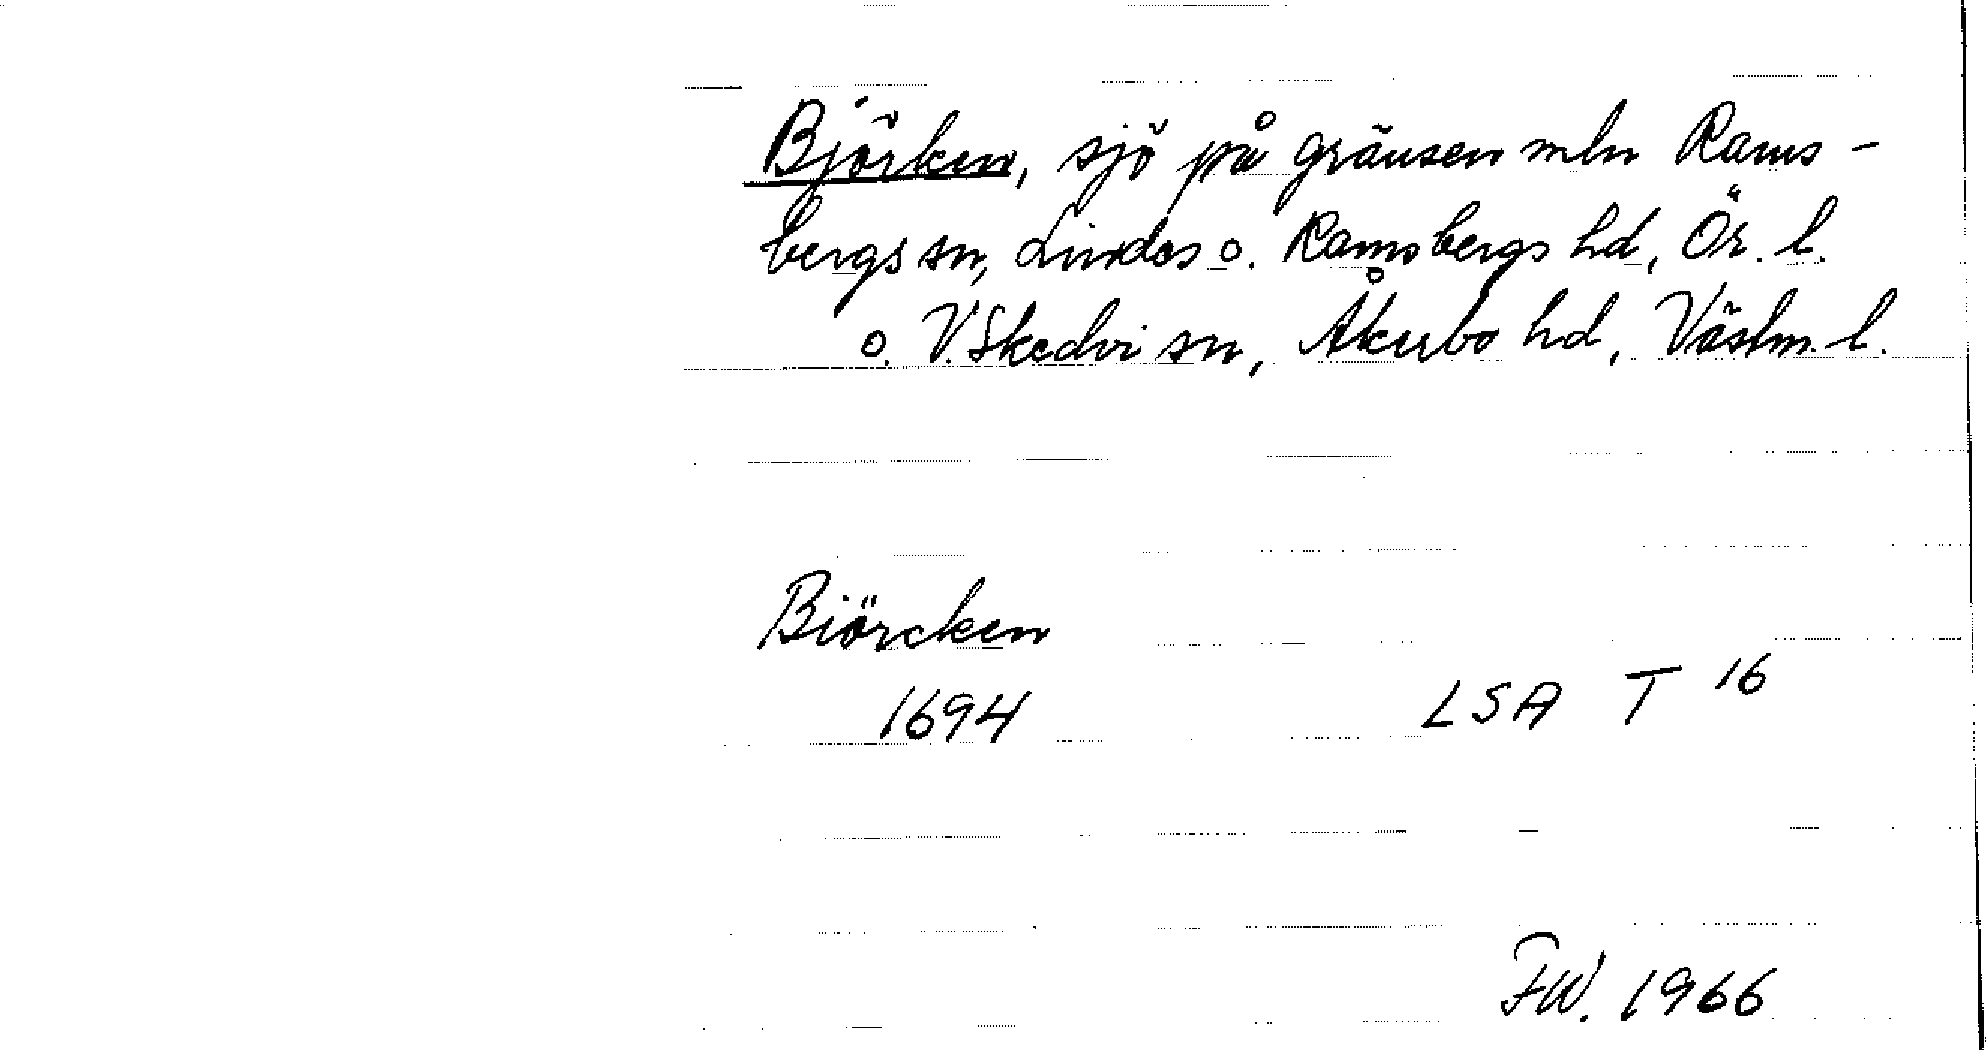 Björken, sjö på gränsen mln Rams-
bergs sn, Lindes o. Ramsbergs hd, Ör. l.
o. V. Skedvi sn, Åkerbo hd, Västm. l.
Biörcken
1694 LSA T 16
FW. 1966